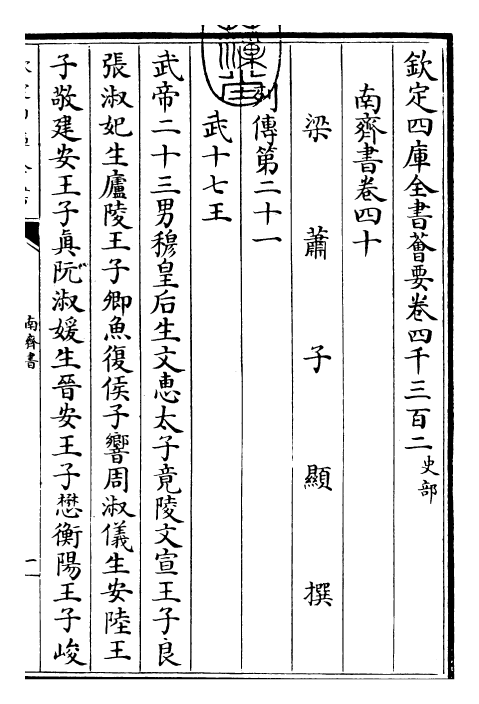 欽定四庫全書薈要卷四千三百二 史部
南齊書卷四十
梁 蕭 子 顯 撰
列傳第二十一
武十七王
武帝二十三男穆皇后生文恵太子竟陵文宣王子良
張淑妃生廬陵王子卿魚復侯子響周淑儀生安陸王
子敬建安王子眞阮淑媛生晉安王子懋衡陽王子峻
南齊書